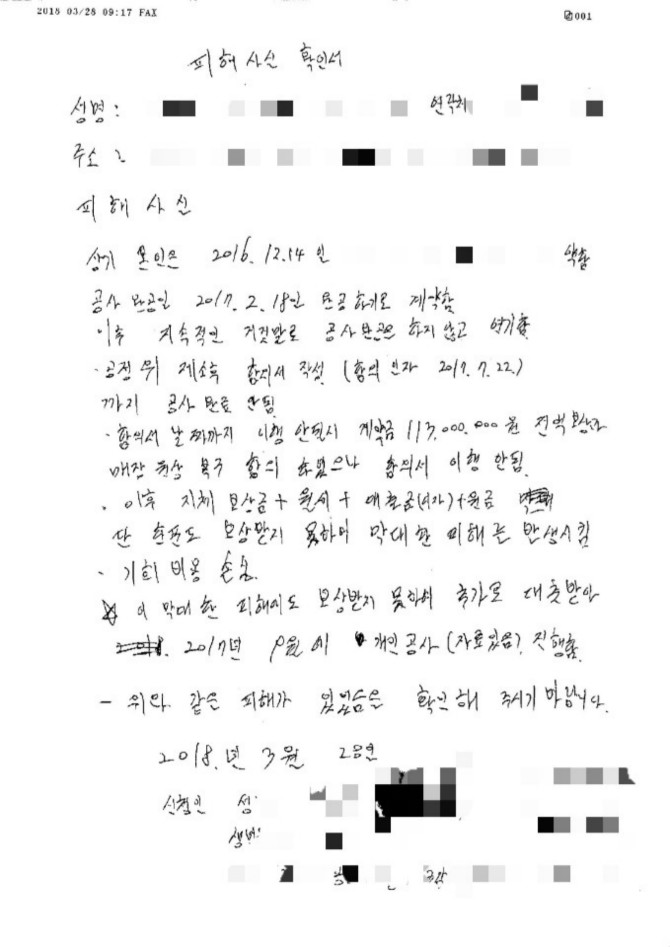 2018 03/28 09:17 FAX 001
피해사실 확인서
성명: 연락처
주소:
피해사실
상기 본인은 2016. 12.14일 약함
공사 완공일 2017. 2. 18일 완공하기로 계약함
이후 지속적인 거짓말로 공사완공을 하지 않고 연기함
· 공정위 제소후 합의서 작성 (합의일자 2017. 7. 22.)
까지 공사 완료 안됨
· 합의서 날짜까지 이행 안될시 계약금 113,000,000원 전액보상과
매장 원상 복구 합의 하였으나 합의서 이행 안됨.
· 이후 지체보상금 + 월세 + 대출금(이자)+원금
단 한푼도 보상받지 못하며 막대한 피해를 발생시킴
- 기회비용 손실.
이 막대한 피해에도 보상받지 못하여 추가로 대출받아
2017년 9월에 개인공사 (자료있음). 진행함.
- 위와 같은 피해가 있었음을 확인해 주시기 바랍니다.
2018.년 3월 28일
신청인 성:
생년: